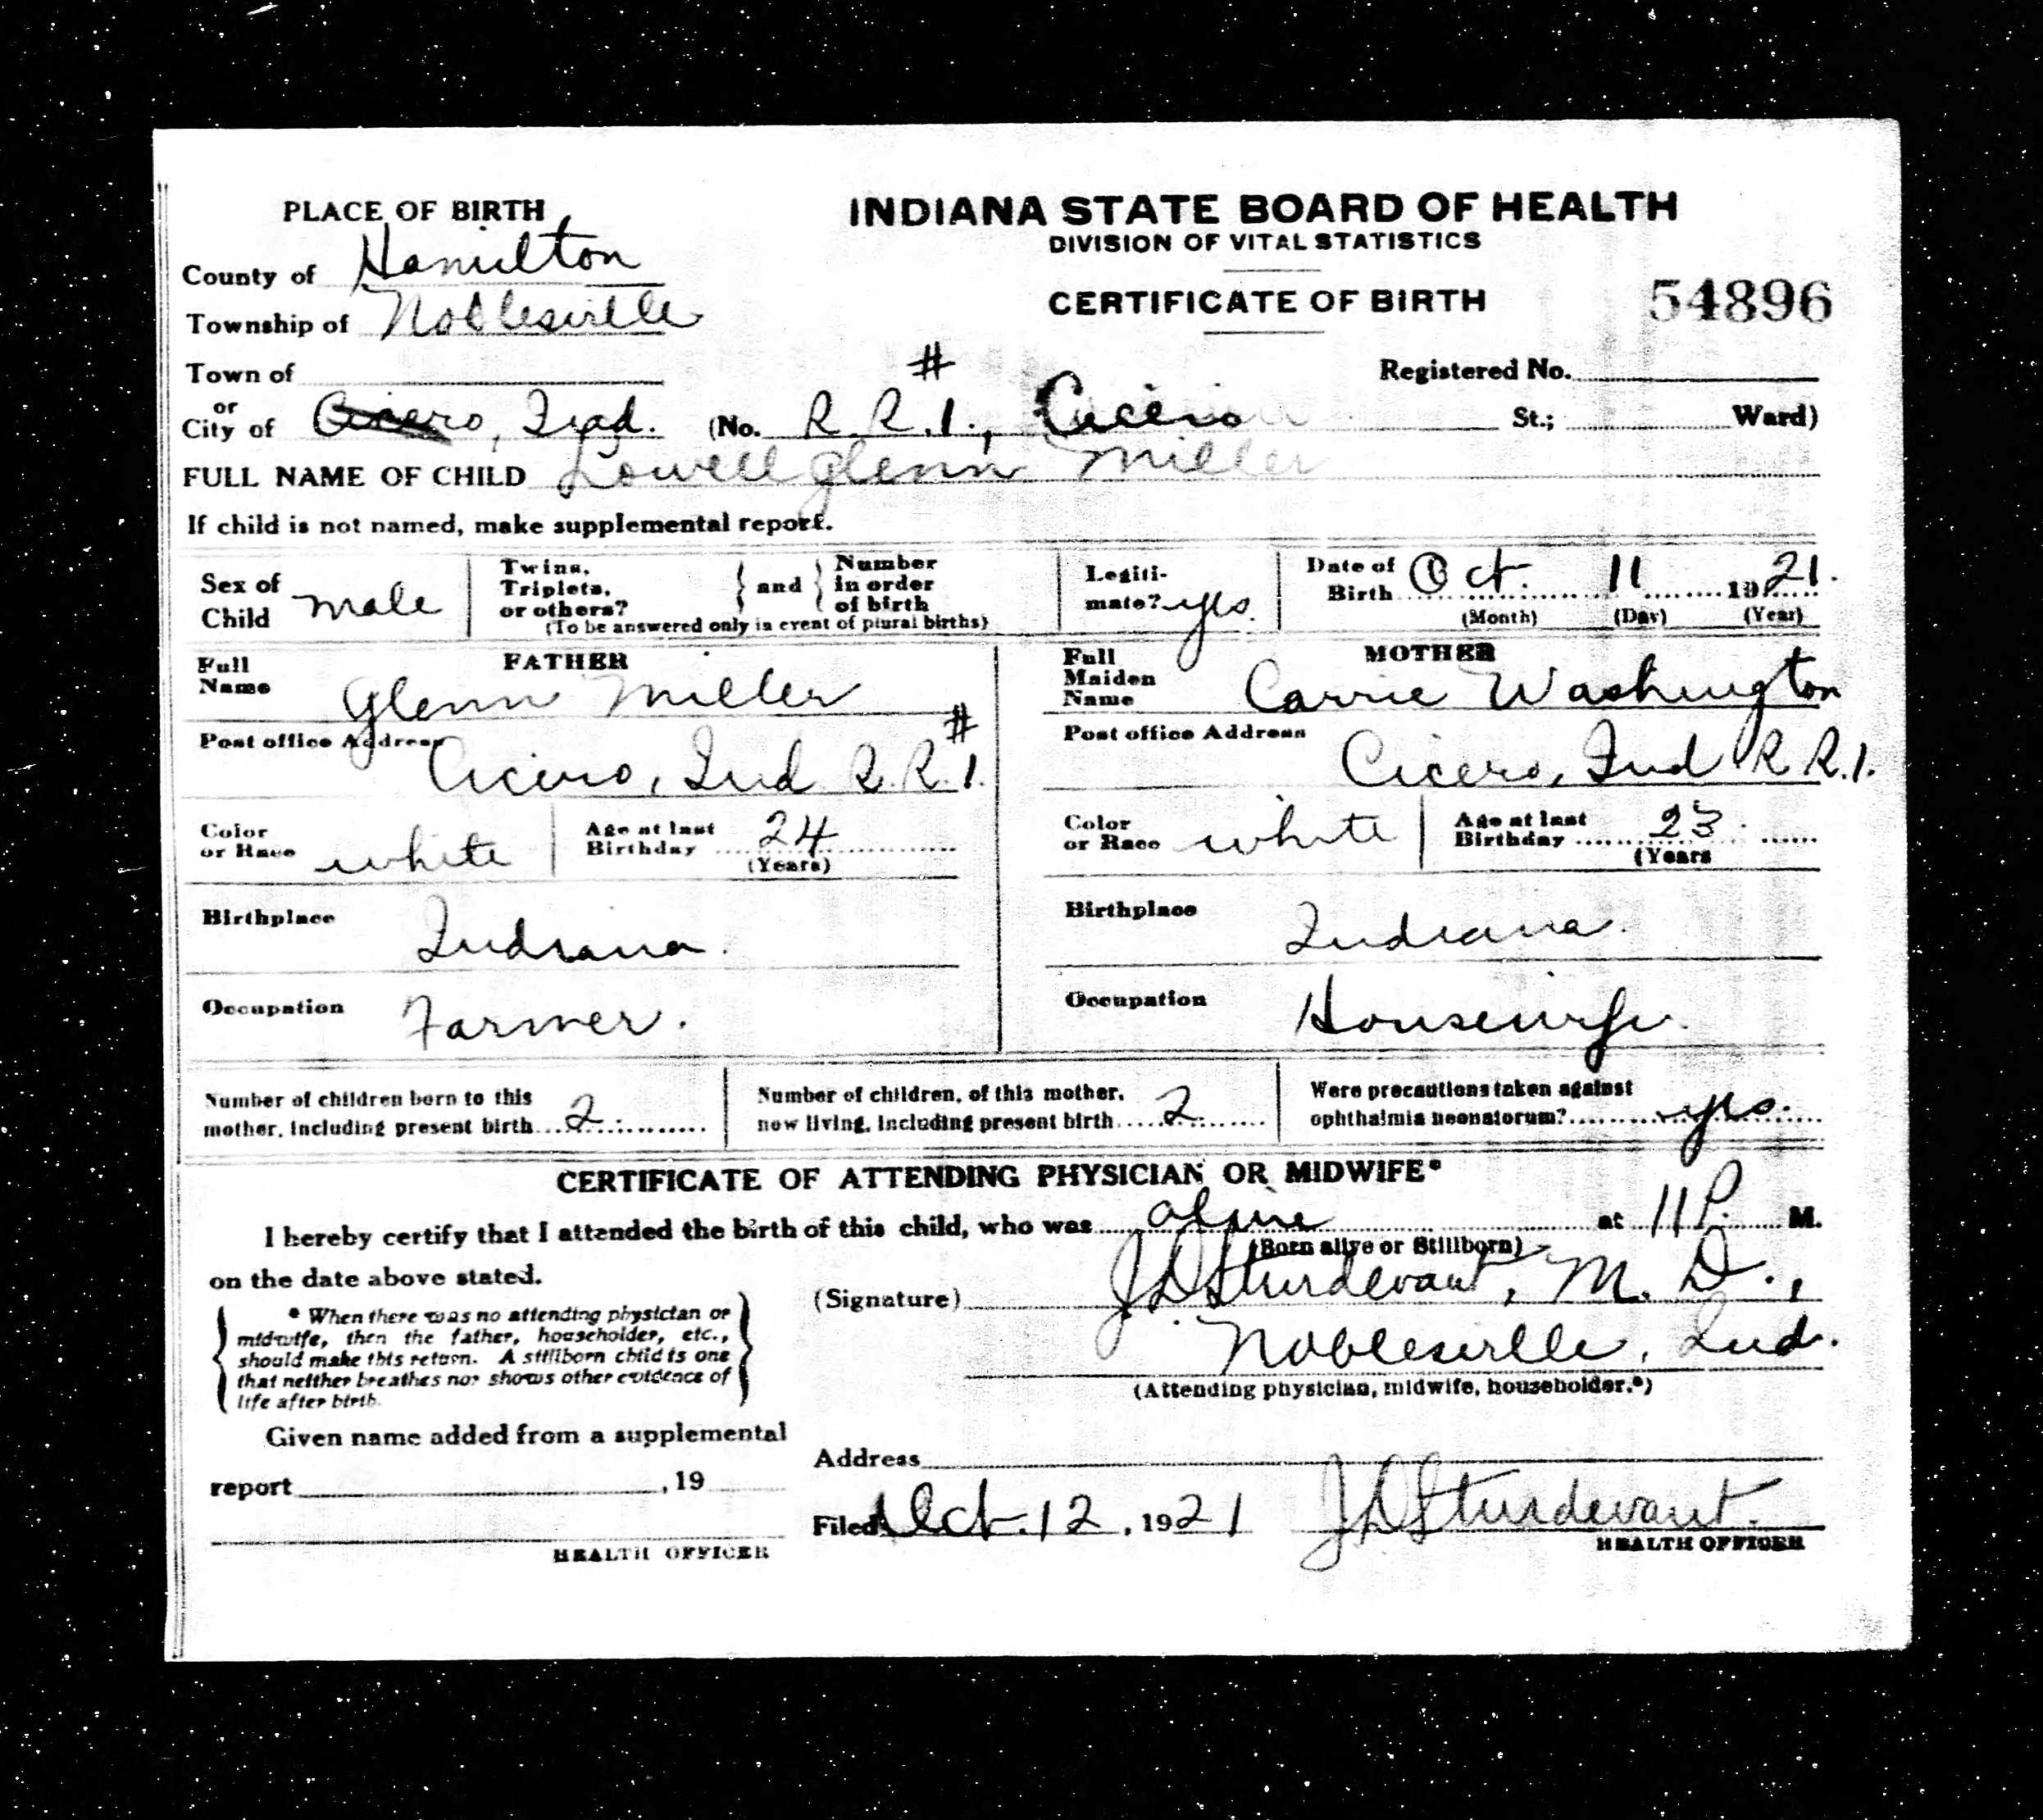 PLACE OF BIRTH
INDIANA STATE BOARD OF HEALTH
DIVISION OF VITAL STATISTICS
County of Hamilton
CERTIFICATE OF BIRTH 54896
Township of Noblesville
Town of
Registered No.
or
City of Cicero, Ind. (No. R.R. #1., Cicero St.; Ward)
FULL NAME OF CHILD Lowell Glenn Miller
If child is not named, make supplemental report.
Sex of Child male
Twins, Triplets, or others? } and { Number in order of birth
(To be answered only in event of plural births)
Legitimate? yes.
Date of Birth Oct. 11 1921.
(Month) (Day) (Year)
FATHER
Full Name Glenn Miller
MOTHER
Full Maiden Name Carrie Washington
Post office Address Cicero, Ind R.R. #1.
Post office Address Cicero, Ind R R.1.
Color or Race white
Age at last Birthday 24
(Years)
Color or Race white
Age at last Birthday 23
(Years
Birthplace Indiana.
Birthplace Indiana.
Occupation Farmer.
Occupation Housewife.
Number of children born to this mother, including present birth 2
Number of children, of this mother, now living, including present birth 2
Were precautions taken against ophthalmia neonatorum? yes.
CERTIFICATE OF ATTENDING PHYSICIAN OR MIDWIFE*
I hereby certify that I attended the birth of this child, who was alive at 11 P. M.
(Born alive or Stillborn)
on the date above stated.
(Signature) J.D. Sturdevant, M. D.,
* When there was no attending physician or
midwife, then the father, householder, etc.,
should make this return. A stillborn child is one
that neither breathes nor shows other evidence of
life after birth.
Noblesville, Ind.
(Attending physician, midwife, householder.*)
Given name added from a supplemental
report , 19
HEALTH OFFICER
Address
Filed Oct. 12, 1921 J D Sturdevant.
HEALTH OFFICER